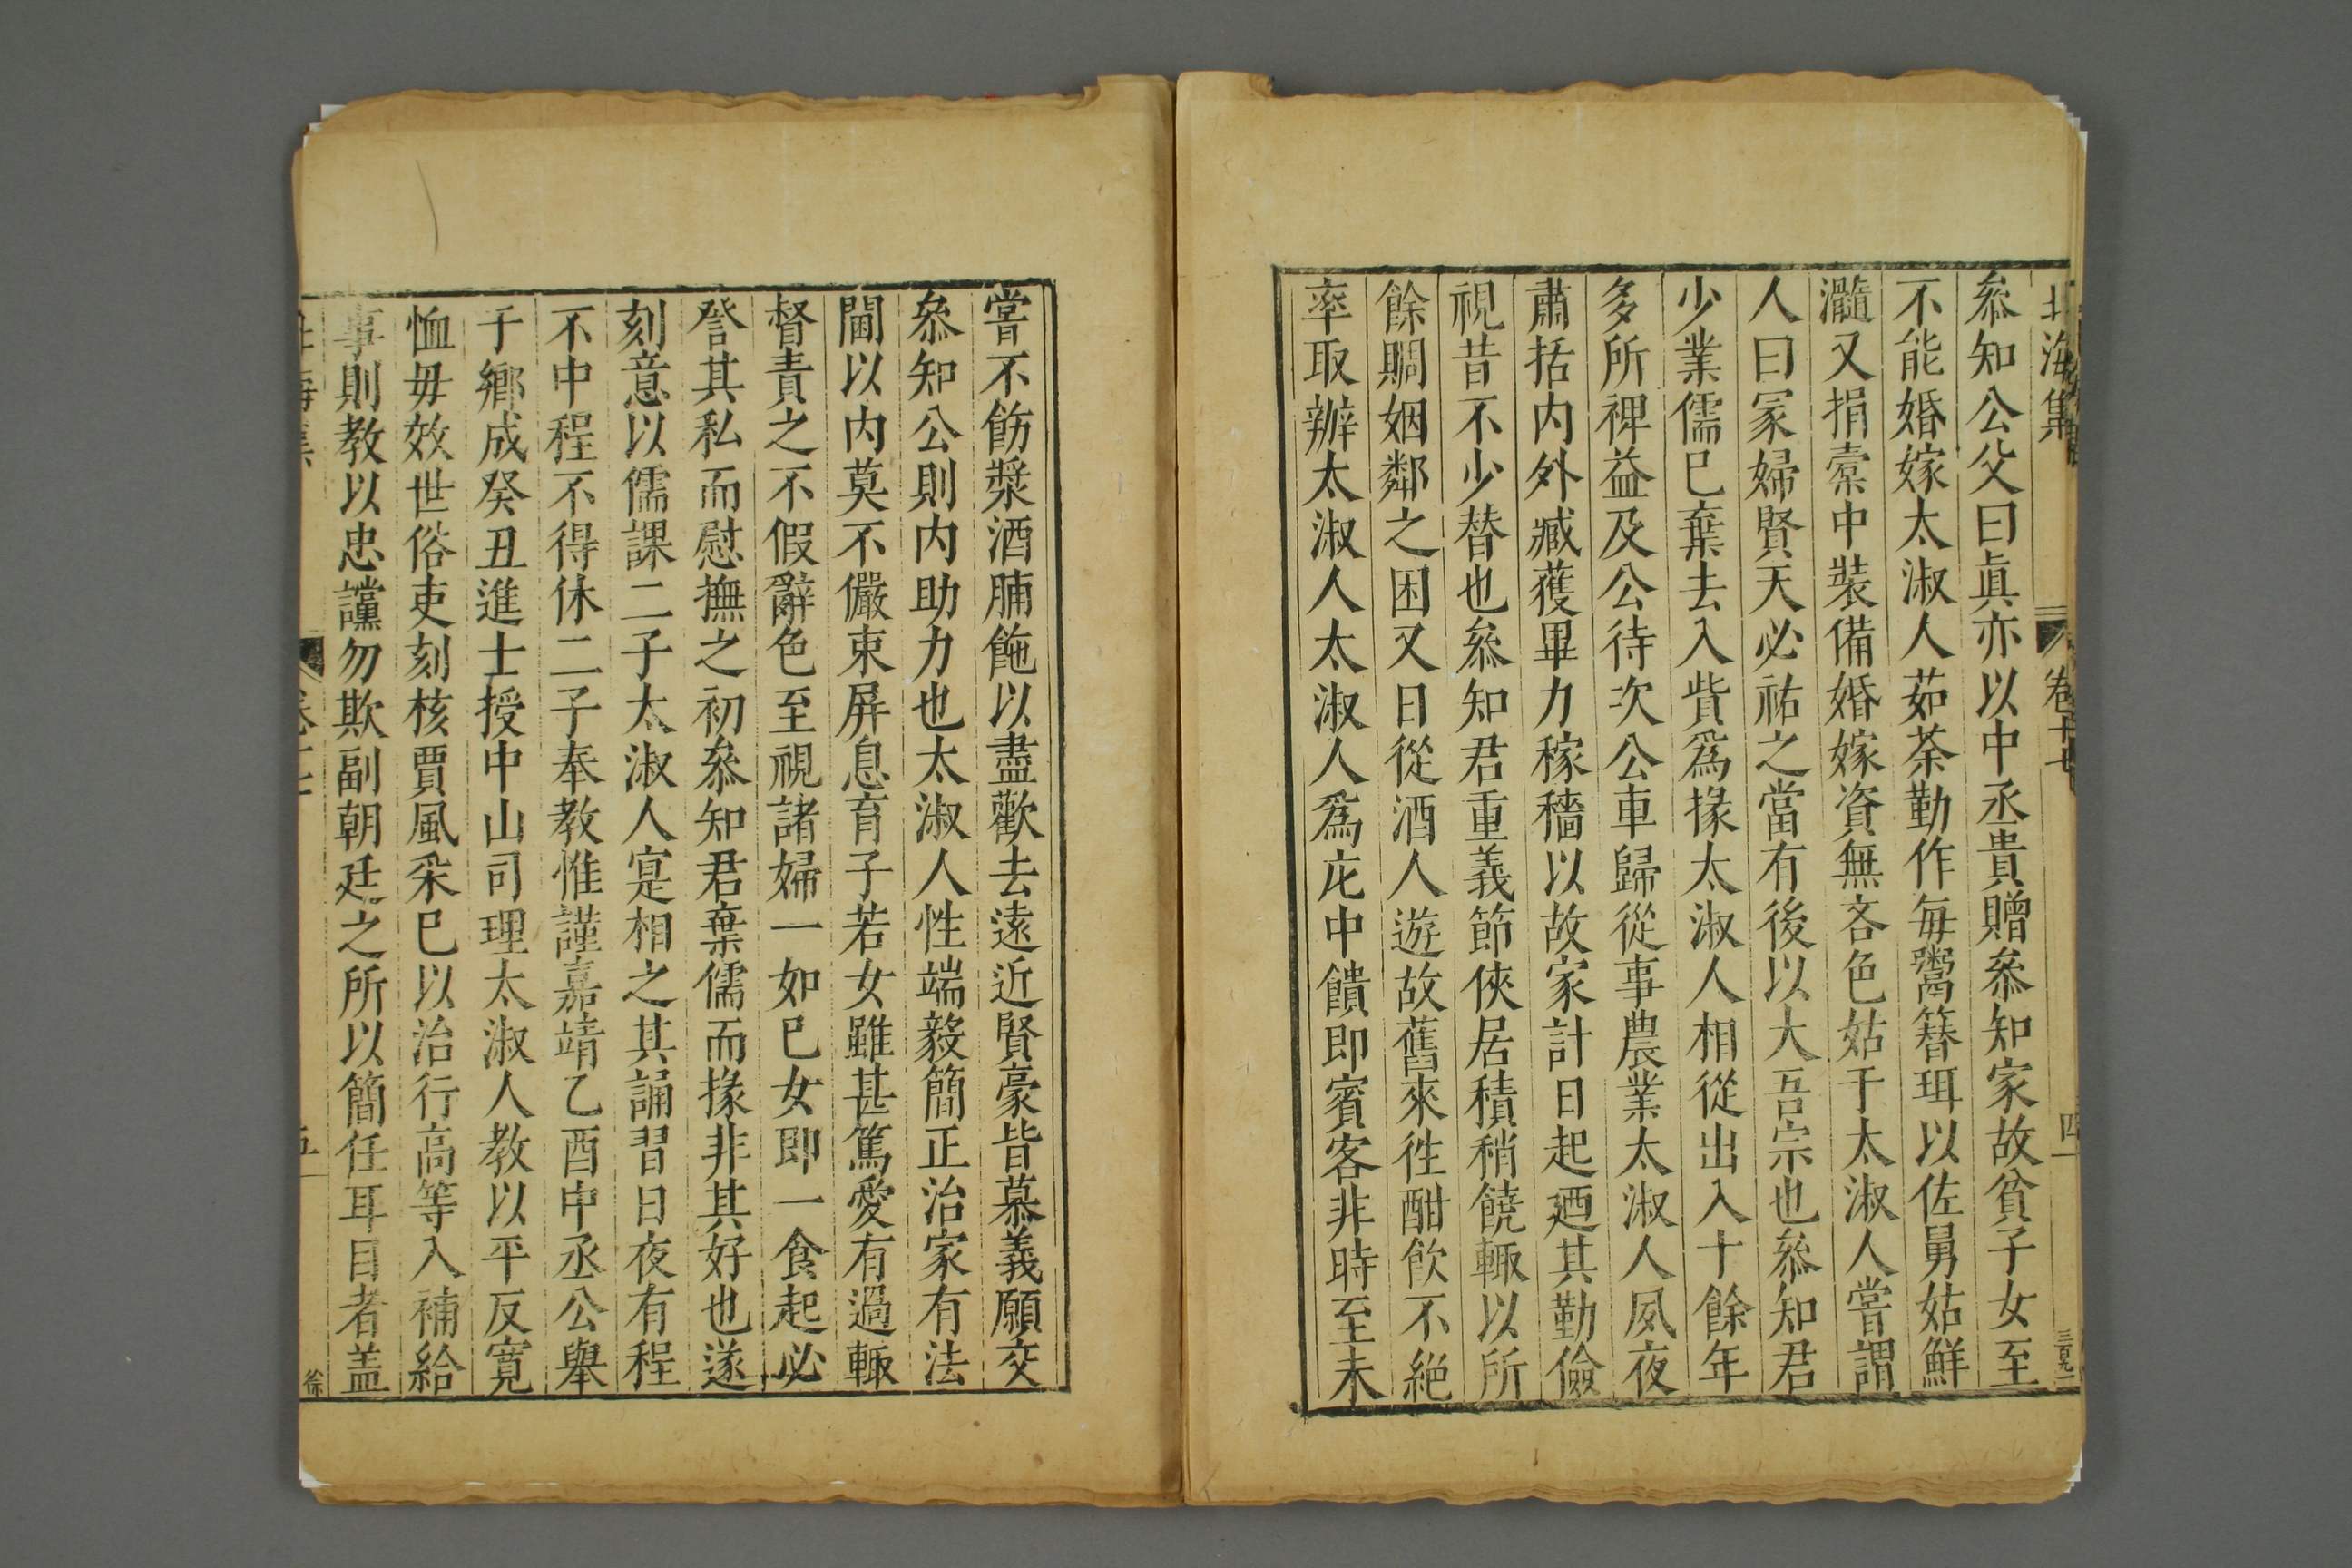 北海集 卷十七 四
叅知公父曰眞亦以中丞貴贈叅知家故貧子女至
不能婚嫁太淑人茹荼勤作每鬻簪珥以佐舅姑鮮
瀡又捐槖中裝備婚嫁資無吝色姑于太淑人嘗謂
人曰冢婦賢天必祐之當有後以大吾宗也叅知君
少業儒已棄去入貲爲掾太淑人相從出入十餘年
多所裨益及公待次公車歸從事農業太淑人夙夜
肅括内外臧獲畢力稼穡以故家計日起廼其勤儉
視昔不少替也叅知君重義節俠居積稍饒輒以所
餘賙姻鄰之困又日從酒人遊故舊來徃酣飲不絶
率取辦太淑人太淑人爲庀中饋即賓客非時至未
嘗不飭漿酒脯䬁以盡歡去遠近賢豪皆慕義願交
叅知公則内助力也太淑人性端毅簡正治家有法
閫以内莫不儼束屏息育子若女雖甚篤愛有過輒
督責之不假辭色至視諸婦一如已女即一食起必
詧其私而慰撫之初叅知君棄儒而掾非其好也遂
刻意以儒課二子太淑人寔相之其誦習日夜有程
不中程不得休二子奉教惟謹嘉靖乙酉中丞公舉
于鄉成癸丑進士授中山司理太淑人教以平反寛
恤毋效世俗吏刻核賈風采已以治行高等入補給
事則教以忠讜勿欺副朝廷之所以簡任耳目者盖
卷十七 五 徐